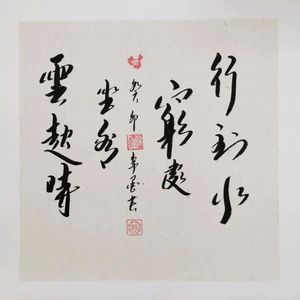 行到水
穷處
坐看
雲起時
癸卯